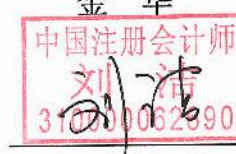 金 华
中国注册会计师
刘 洁
刘洁
310000062890